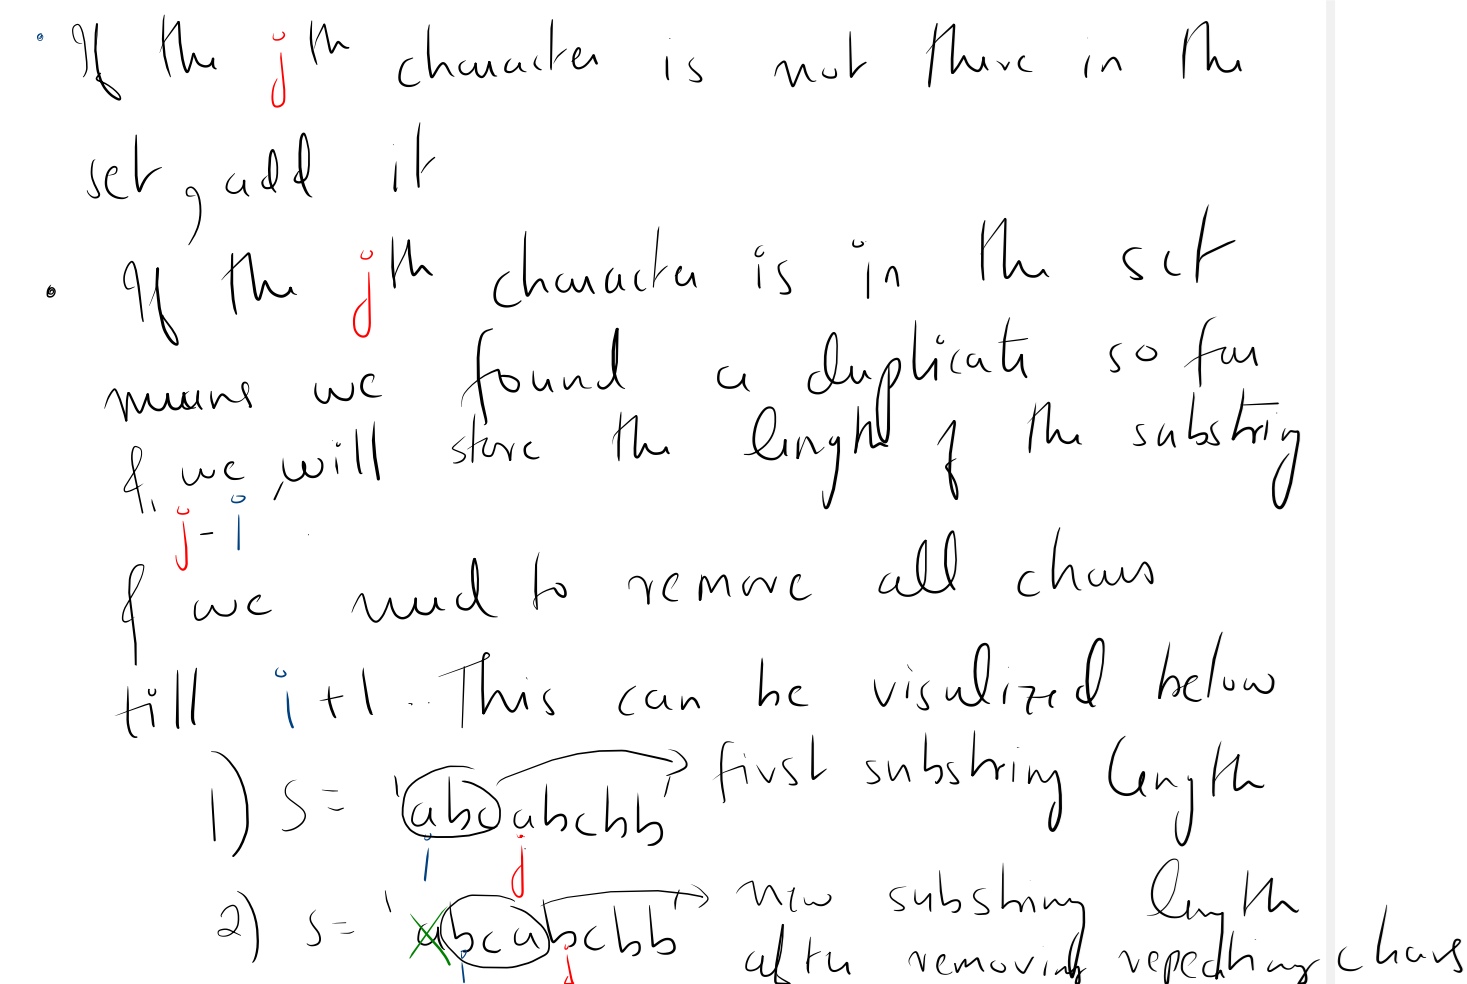 • If the jth character is not there in the
set, add it
• If the jth character is in the set
means we found a duplicate so far
& we will store the length of the substring
j-i
& we need to remove all chars
till i+1. This can be visulized below
1) S = 'abcabcbb' first substring length
i j
2) S = 'abcabcbb' new substring length
i j after removing repeating chars